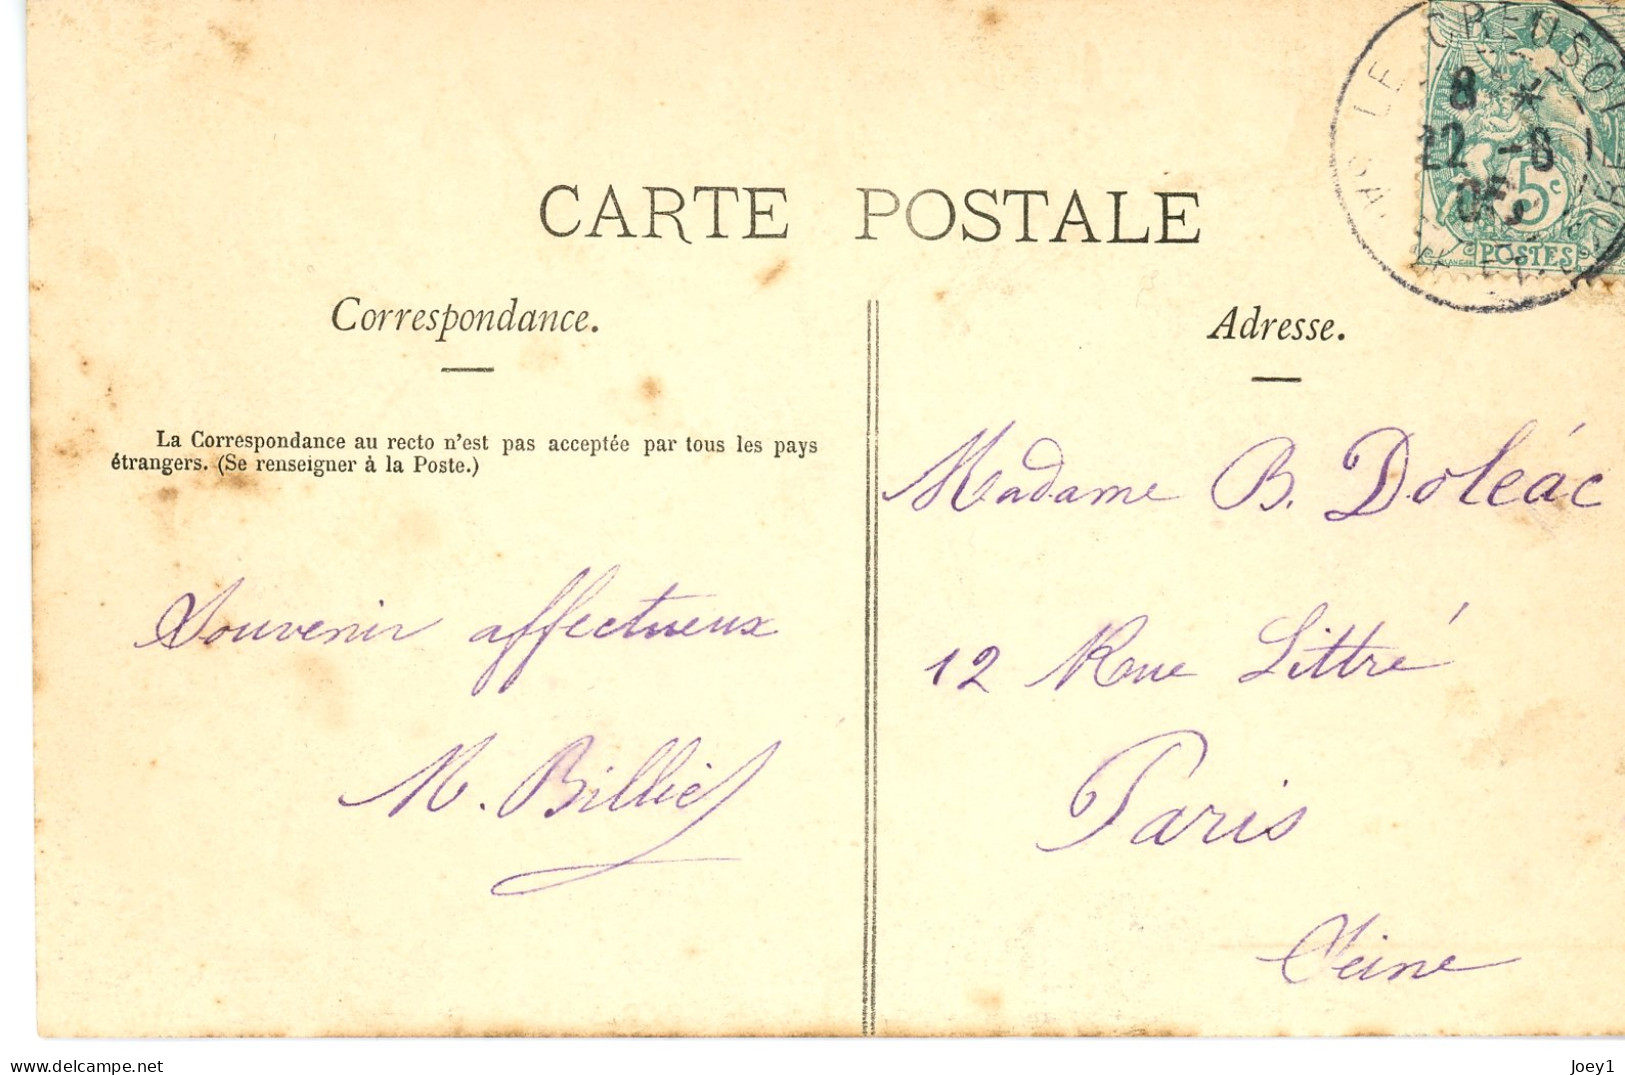 CARTE POSTALE
LE CREUSOT
8 *
22 -6
06
5c
POSTES
Correspondance.
La Correspondance au recto n'est pas acceptée par tous les pays
étrangers. (Se renseigner à la Poste.)
Souvenir affectueux
M. Billiet
Adresse.
Madame B. Doleác
12 Rue Littré
Paris
Seine
delcampe.net
Joey1